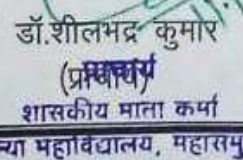 डॉ.शीलभद्र कुमार
(प्राचार्य)
शासकीय माता कर्मा
न्या महाविद्यालय, महासमु